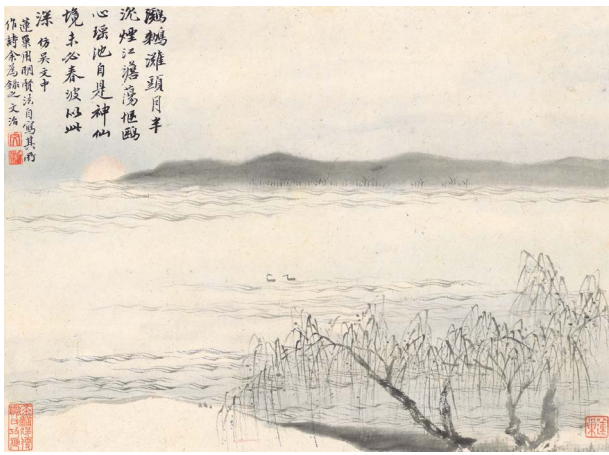 鸂鶒灘頭月半
沉煙江澹蕩愜鷗
心瑶池自是神仙
境未必春波似此
深 仿吳文中
蓮巢用明賢法自寫其所
作詩余為錄之 文治
蓮巢